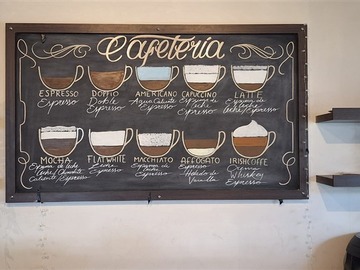 Cafeteria
ESPRESSO
Espresso
DOPPIO
Doble
Espresso
AMERICANO
Agua Caliente
Espresso
CAPUCCINO
Espuma de
leche
Espresso
LATTE
Espuma de
leche
leche/Espresso
MOCHA
Espuma de leche
leche/Chocolate
Caliente/Espresso
FLAT WHITE
Leche
Espresso
MACCHIATO
Espuma de
leche
Espresso
AFFOGATO
Espresso
Helado de
Vainilla
IRISHCOFFE
Crema
Whiskey
Espresso